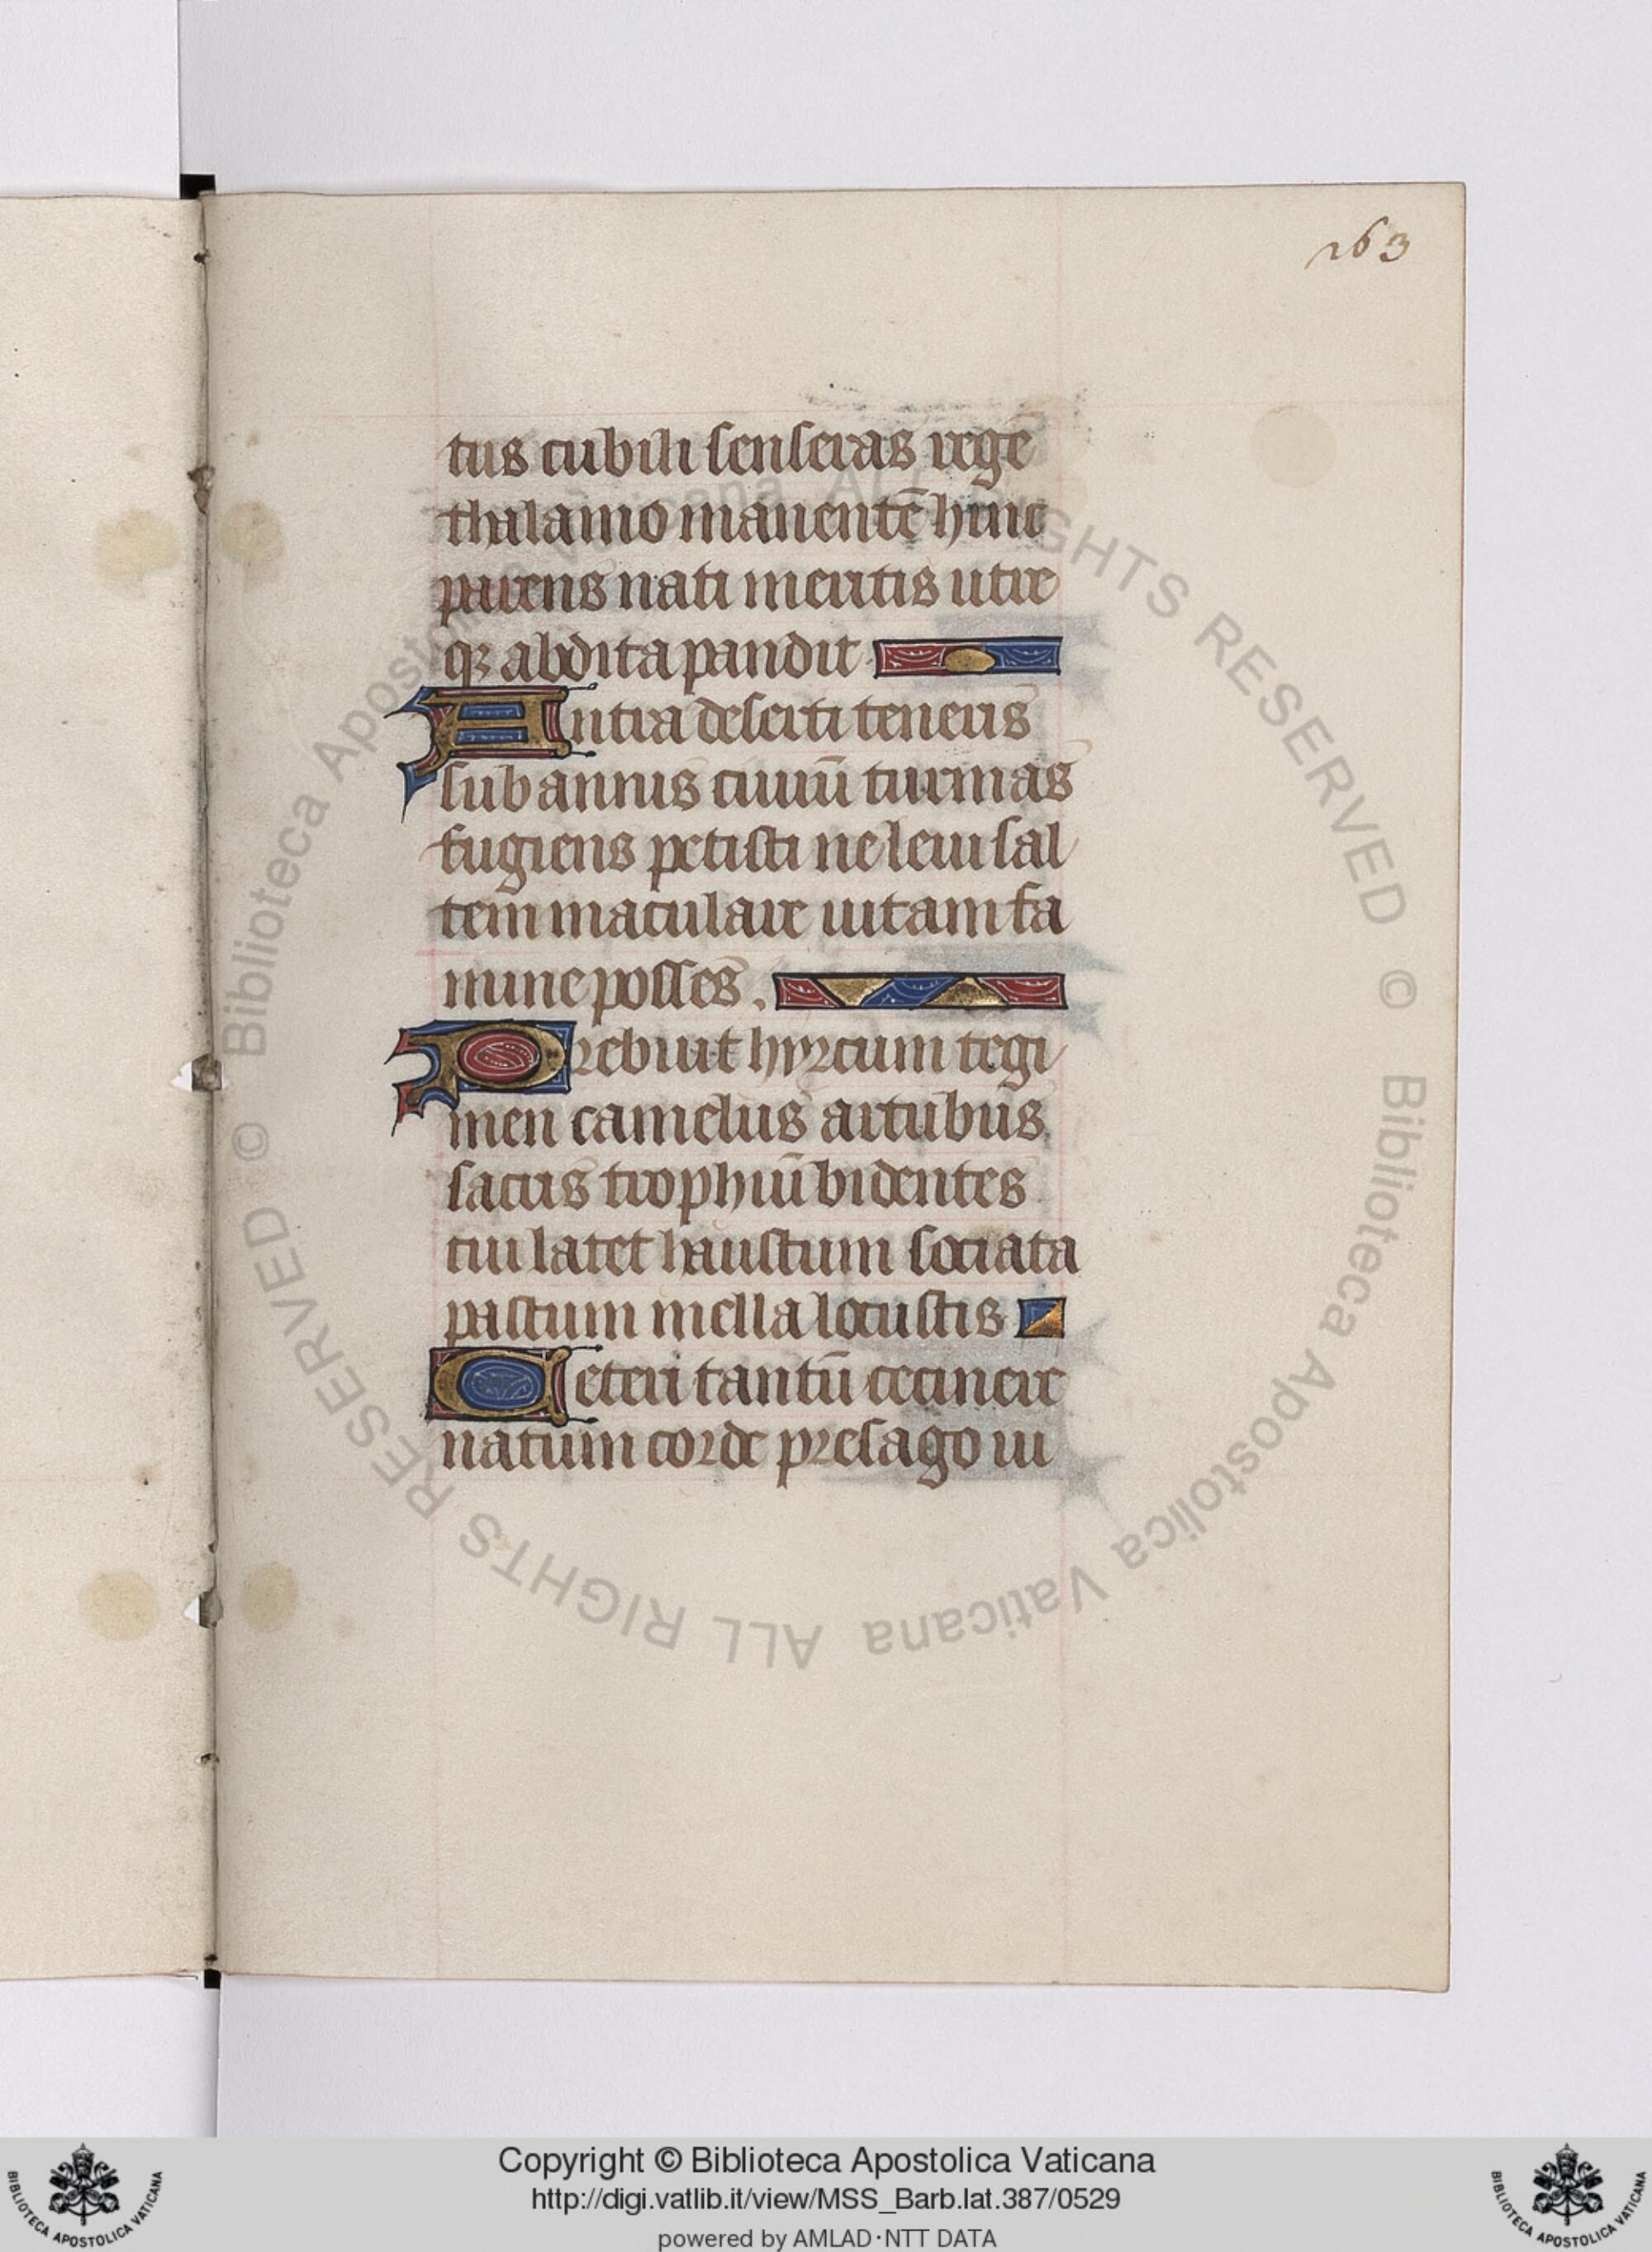 263
tus cubili senseras regē
thalamo manentē hinc
parens nati meritis utre
qꝫ abdita pandit
Antra deserti teneris
sub annis ciuiū turmas
fugiens petisti ne leui sal
tem maculare uitam fa
mine posses.
Prebuit hyrcum tegi
men camelus artubus
sacris trophiū bidentes
cui latet haustum sociata
pastum mella locustis
Ceteri tantū cecinere
natum corde presago iu
© Biblioteca Apostolica Vaticana ALL RIGHTS RESERVED © Biblioteca Apostolica Vaticana ALL RIGHTS RESERVED
Copyright © Biblioteca Apostolica Vaticana
http://digi.vatlib.it/view/MSS_Barb.lat.387/0529
powered by AMLAD·NTT DATA
BIBLIOTECA APOSTOLICA VATICANA
BIBLIOTECA APOSTOLICA VATICANA